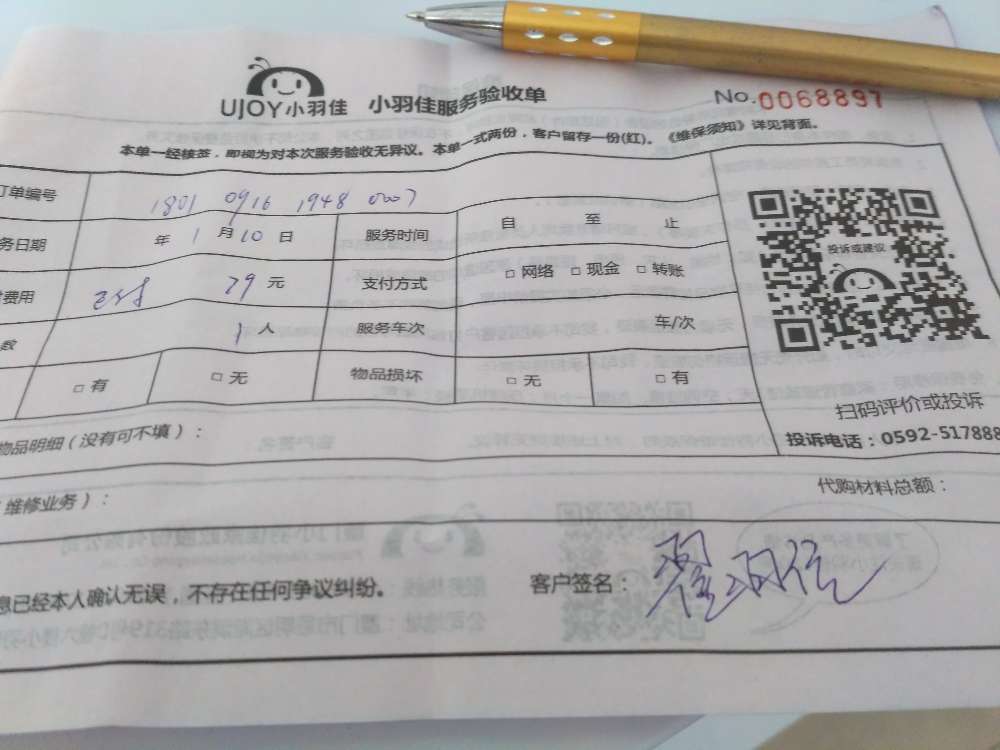 UJOY小羽佳 小羽佳服务验收单 No.0068897
本单一经核签,即视为对本次服务验收无异议。本单一式两份,客户留存一份(红)。《维保须知》详见背面。
订单编号 1801 0916 1948 0007
务日期 年 1 月 10 日 服务时间 自 至 止
费用 79 元 支付方式 □网络 □现金 □转账
数 1 人 服务车次 车/次
□有 □无 物品损坏 □无 □有
投诉或建议
扫码评价或投诉
投诉电话:0592-517888
物品明细(没有可不填):
维修业务): 代购材料总额:
息已经本人确认无误,不存在任何争议纠纷。 客户签名: